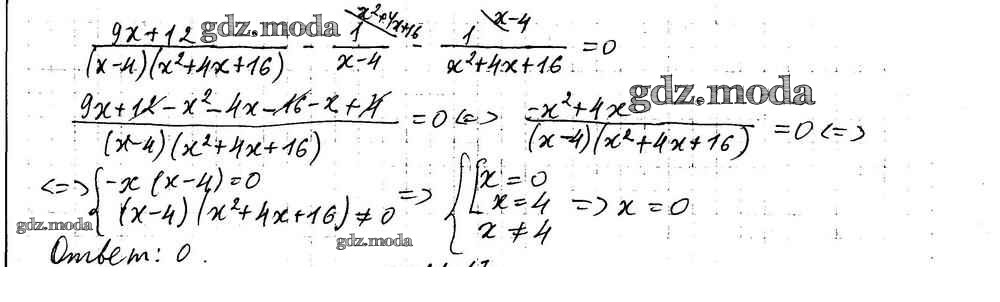 gdz.moda
(9x+12)/((x-4)(x²+4x+16)) - 1/(x-4) - 1/(x²+4x+16) = 0
x²+4x+16
x-4
gdz.moda
(9x+12-x²-4x-16-x+4)/((x-4)(x²+4x+16)) = 0 <=> (-x²+4x)/((x-4)(x²+4x+16)) = 0 <=>
<=> { -x(x-4)=0
(x-4)(x²+4x+16)≠0 => { [ x=0
x=4
x≠4 => x=0
gdz.moda
gdz.moda
Ответ: 0.